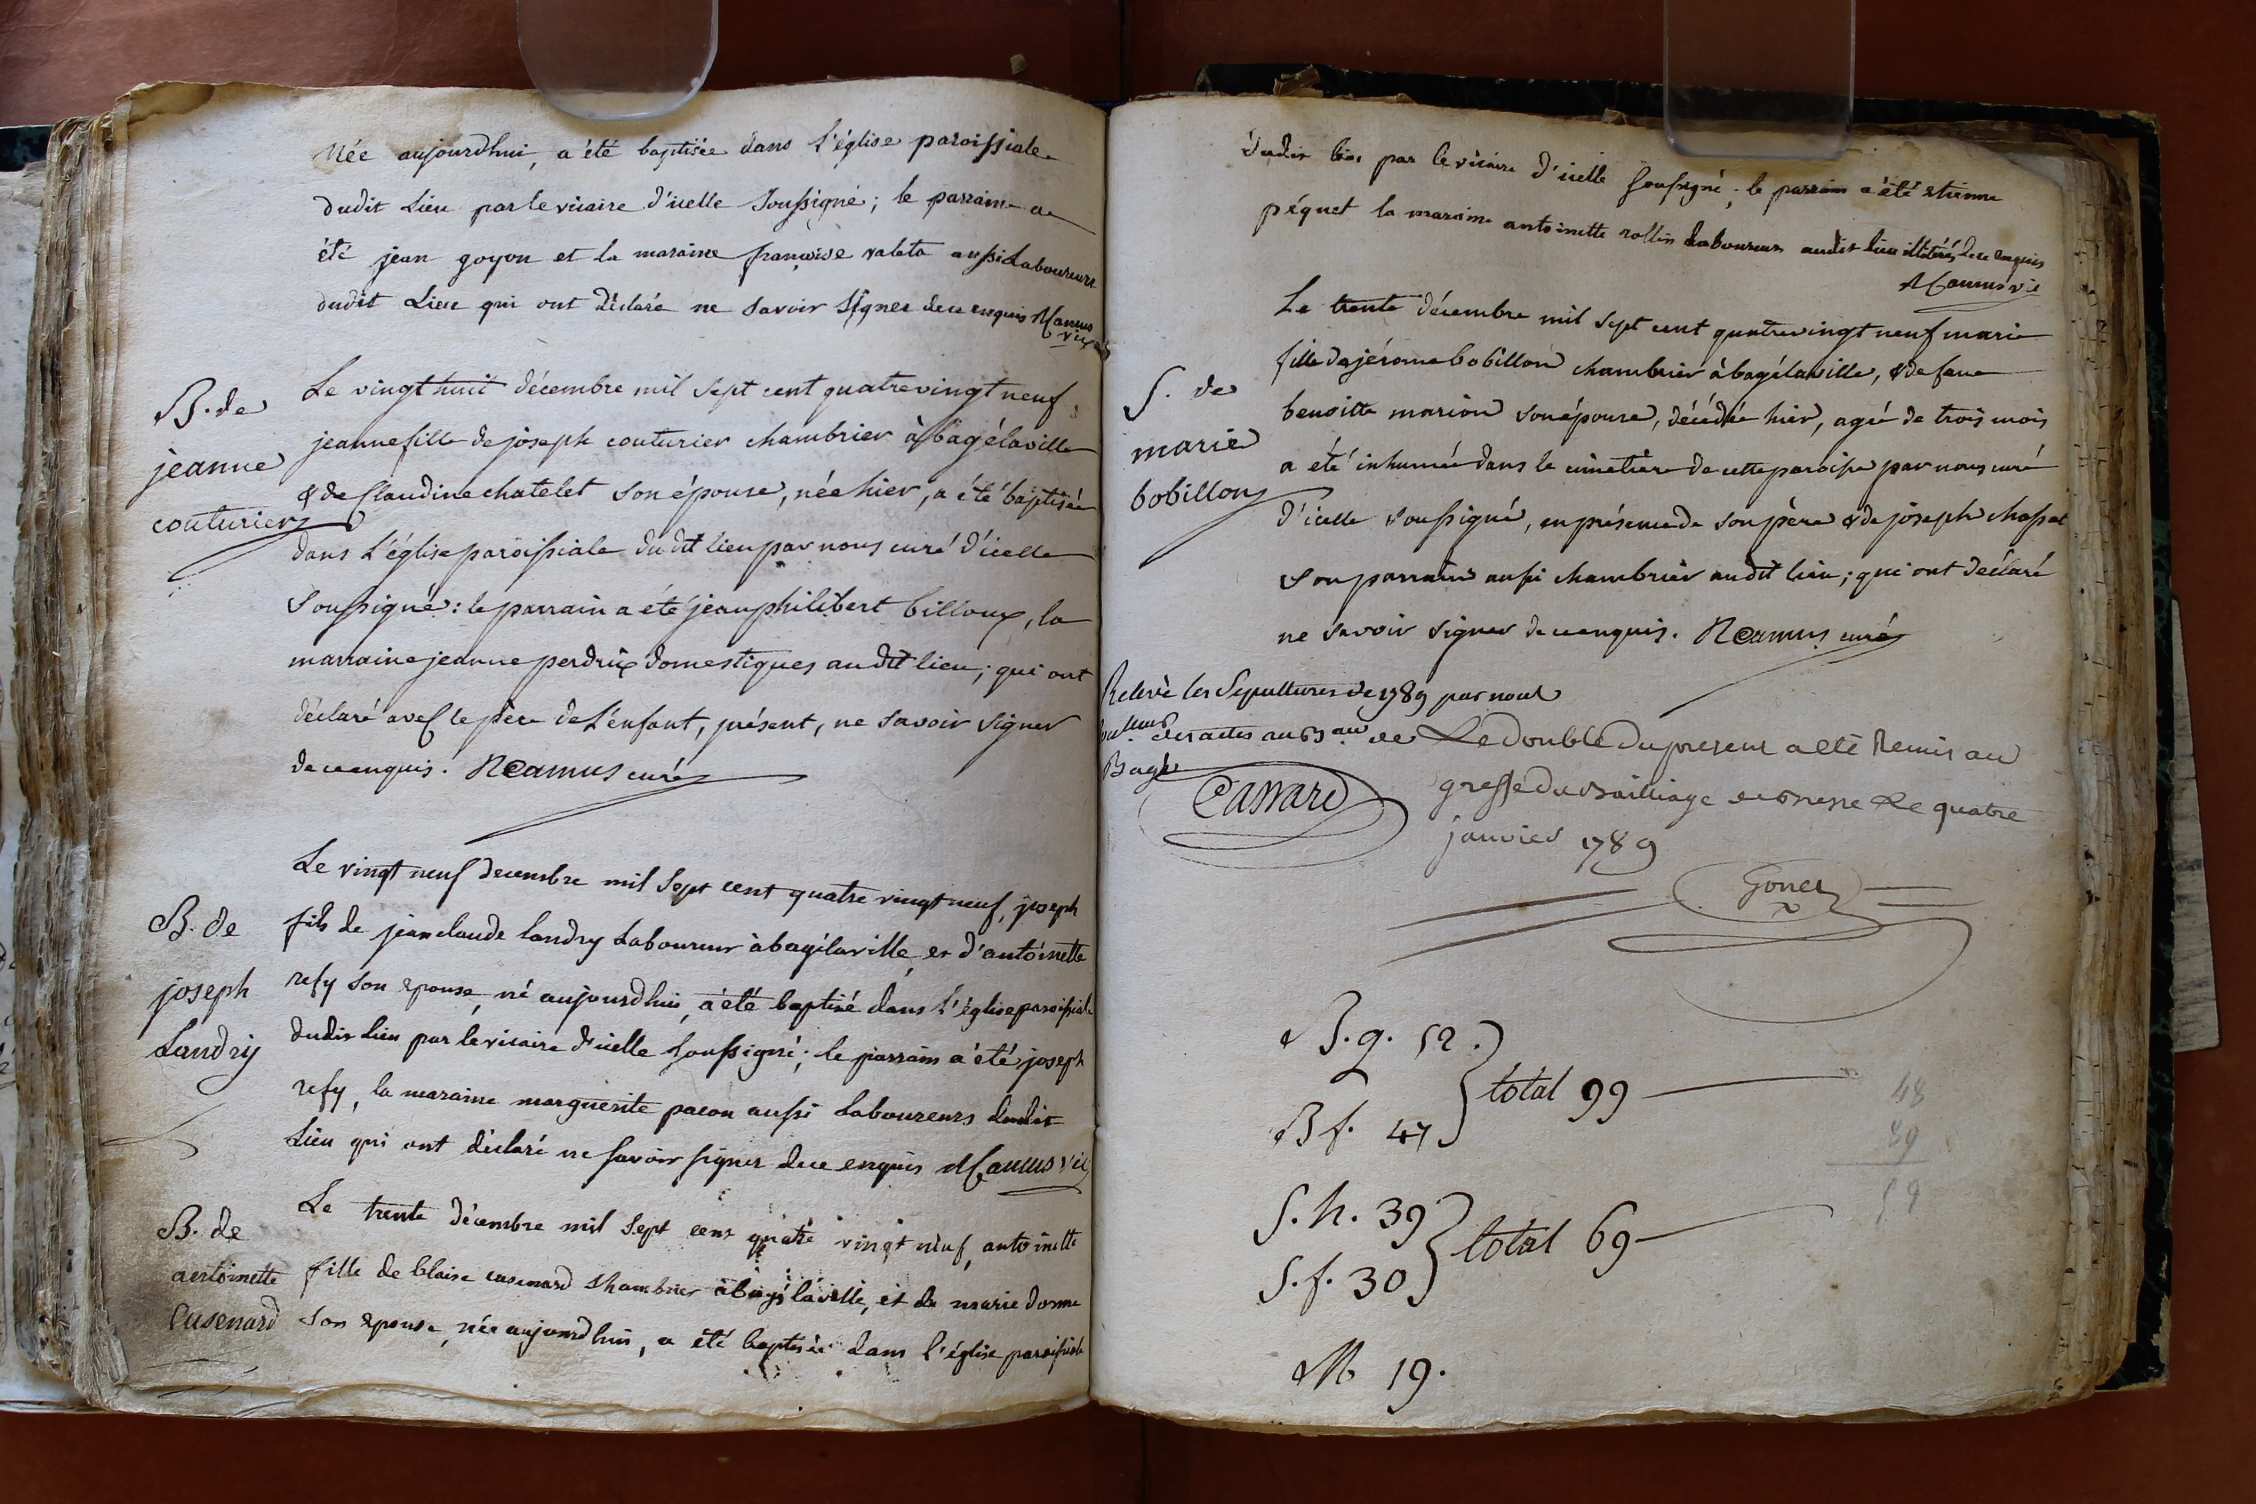 Née aujourdhui, a été baptisée dans l'église paroissiale
dudit Lieu par le vicaire d'icelle soussigné; le parrain a
été jean goyon et la maraine françoise valeta aussi Laboureurs
dudit Lieu qui ont déclaré ne savoir signer de ce enquis N Camus
vic
B. de
jeanne
couturier
Le vingt huit décembre mil sept cent quatrevingt neuf,
jeanne fille de joseph couturier chambrier à bagélaville
& de Claudine chatelet son épouse, née hier, a été baptisée
dans l'église paroissiale du dit lieu par nous curé d'icelle
soussigné : le parrain a été jean philibert billoux, la
marraine jeanne perdrix domestiques au dit lieu; qui ont
déclaré avec le père de l'enfant, présent, ne savoir signer
de ce enquis. N Camus curé
B. de
joseph
Landry
Le vingt neuf decembre mil sept cent quatre vingt neuf, joseph
fils de jean claude landry Laboureur à bagélaville, et d'antoinette
refy son epouse, né aujourdhui, a été baptisé dans l'église paroissiale
dudit Lieu par le vicaire d'icelle soussigné; le parrain a été joseph
refy, la maraine marguerite pacon aussi Laboureurs dudit
Lieu qui ont déclaré ne savoir signer de ce enquis N Camus vic
B. de
antoinette
Cusenard
Le trente décembre mil sept cent quatre vingt neuf, antoinette
fille de blaise cusenard chambrier à bagélaville, et de marie donne
son epouse, née aujourdhui, a été baptisée dans l'église paroissiale
dudit lieu par le vicaire d'icelle soussigné; le parrain a été etienne
péquet la maraine antoinette rollin Laboureurs audit lieu illitérés de ce enquis
N Camus vic
S. de
marie
bobillon
Le trente décembre mil sept cent quatrevingt neuf marie
fille de jérome bobillon chambrier à bagélaville, & de feue
benoitte marion son épouse, décédée hier, agée de trois mois
a été inhumée dans le cimetière de cette paroisse par nous curé
d'icelle soussigné, en présence de son père & de joseph chassat
son parrain aussi chambrier audit lieu; qui ont déclaré
ne savoir signer de ce enquis. N Camus curé
Relevé les Sepultures de 1789 par nous
des actes au de
Bagé
Cassard
Le double du present a eté Remis au
greffe du Bailliage de Bresse Le quatre
janvier 1789
Gonet
B. g. 52.
total 99
B f. 47
S. h. 39
total 69
S. f. 30
M 19.
48
39